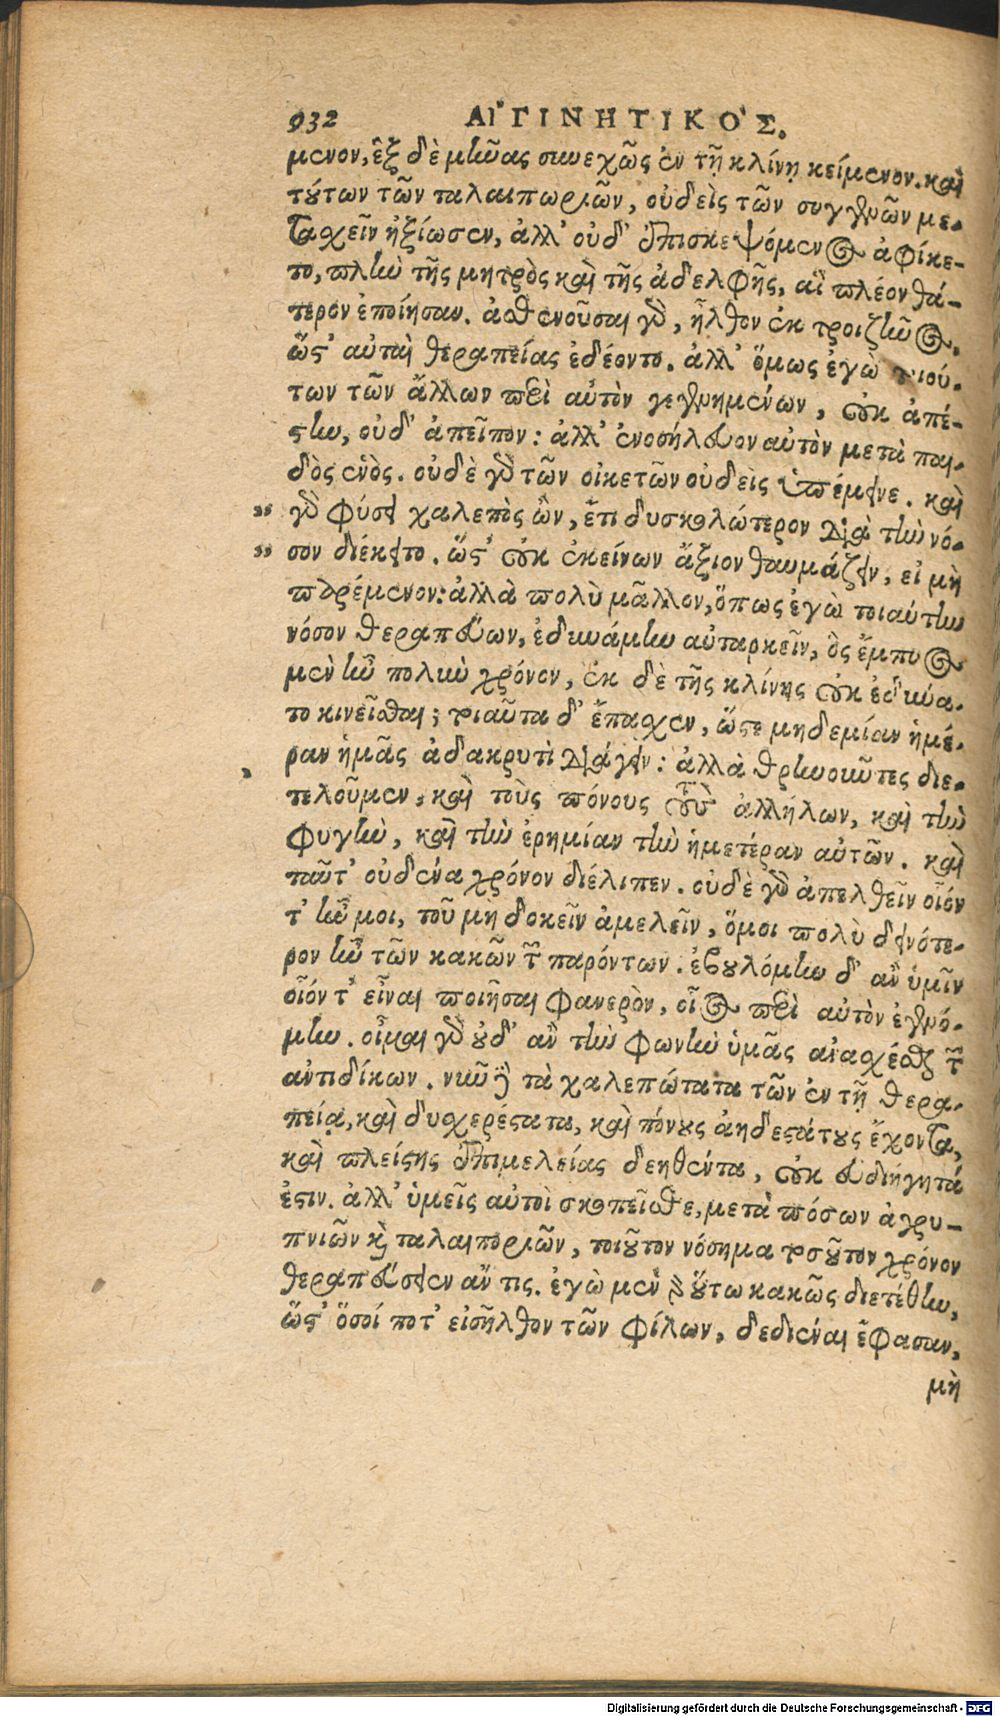 932 ΑΙ᾽ΓΙΝΗΤΙΚΟ´Σ.
μενον, ἓξ δὲ μῆνας συνεχῶς ἐν τῇ κλίνῃ κείμενον. καὶ
τούτων τῶν ταλαιπωριῶν, οὐδεὶς τῶν συγγενῶν με-
ταχεῖν ἠξίωσεν, ἀλλ’ οὐδ’ ἐπισκεψόμενος ἀφίκε-
το, πλὴν τῆς μητρὸς καὶ τῆς ἀδελφῆς, αἳ πλέον θά-
τερον ἐποίησαν. ἀσθενοῦσαι γὰρ, ἦλθον ἐκ τροιζῆνος.
ὥστ’ αὐταὶ θεραπείας ἐδέοντο. ἀλλ’ ὅμως ἐγὼ τοιού-
των τῶν ἄλλων περὶ αὐτὸν γεγενημένων, οὐκ ἀπέ-
στην, οὐδ’ ἀπεῖπον: ἀλλ’ ἐνοσήλευον αὐτὸν μετὰ παι-
δὸς ἑνὸς. οὐδὲ γὰρ τῶν οἰκετῶν οὐδεὶς ὑπέμεινε. καὶ
„ γὰρ φύσει χαλεπὸς ὢν, ἔτι δυσκολώτερον διὰ τὴν νό-
„ σον διέκειτο. ὥστ’ οὐκ ἐκείνων ἄξιον θαυμάζειν, εἰ μὴ
παρέμενον: ἀλλὰ πολὺ μᾶλλον, ὅπως ἐγὼ τοιαύτην
νόσον θεραπεύων, ἐδυνάμην αὐταρκεῖν, ὃς ἔμπυος
μὲν ἦν πολὺν χρόνον, ἐκ δὲ τῆς κλίνης οὐκ ἐδύνα-
το κινεῖσθαι; τοιαῦτα δ’ ἔπασχεν, ὥστε μηδεμίαν ἡμέ-
ραν ἡμᾶς ἀδακρυτὶ διάγειν: ἀλλὰ θρηνοῦντες διε-
τελοῦμεν, καὶ τοὺς πόνους τοὺς ἀλλήλων, καὶ τὴν
φυγὴν, καὶ τὴν ἐρημίαν τὴν ἡμετέραν αὐτῶν. καὶ
ταῦτ’ οὐδένα χρόνον διέλιπεν. οὐδὲ γὰρ ἀπελθεῖν οἷόν
τ’ ἦν μοι, τοῦ μὴ δοκεῖν ἀμελεῖν, ὅμοι πολὺ δεινότε-
ρον ἦν τῶν κακῶν τῶν παρόντων. ἐβουλόμην δ’ ἂν ὑμῖν
οἷόν τ’ εἶναι ποιῆσαι φανερὸν, οἷος περὶ αὐτὸν ἐγενό-
μην. οἶμαι γὰρ οὐδ’ ἂν τὴν φωνὴν ὑμᾶς ἀνασχέσθαι τῶν
ἀντιδίκων. νῦν δὲ τὰ χαλεπώτατα τῶν ἐν τῇ θερα-
πείᾳ, καὶ δυχερέστατα, καὶ πόνους ἀηδεστάτους ἔχοντα,
καὶ πλείστης ἐπιμελείας δεηθέντα, οὐκ εὐδιήγητά
ἐστιν. ἀλλ’ ὑμεῖς αὐτοὶ σκοπεῖσθε, μετὰ πόσων ἀγρυ-
πνιῶν καὶ ταλαιποριῶν, τοιοῦτον νόσημα τοσοῦτον χρόνον
θεραπεύσειεν ἄν τις. ἐγὼ μὲν γὰρ οὕτω κακῶς διετέθην,
ὥστ’ ὅσοί ποτ’ εἰσῆλθον τῶν φίλων, δεδιέναι ἔφασαν,
μὴ
Digitalisierung gefördert durch die Deutsche Forschungsgemeinschaft - DFG